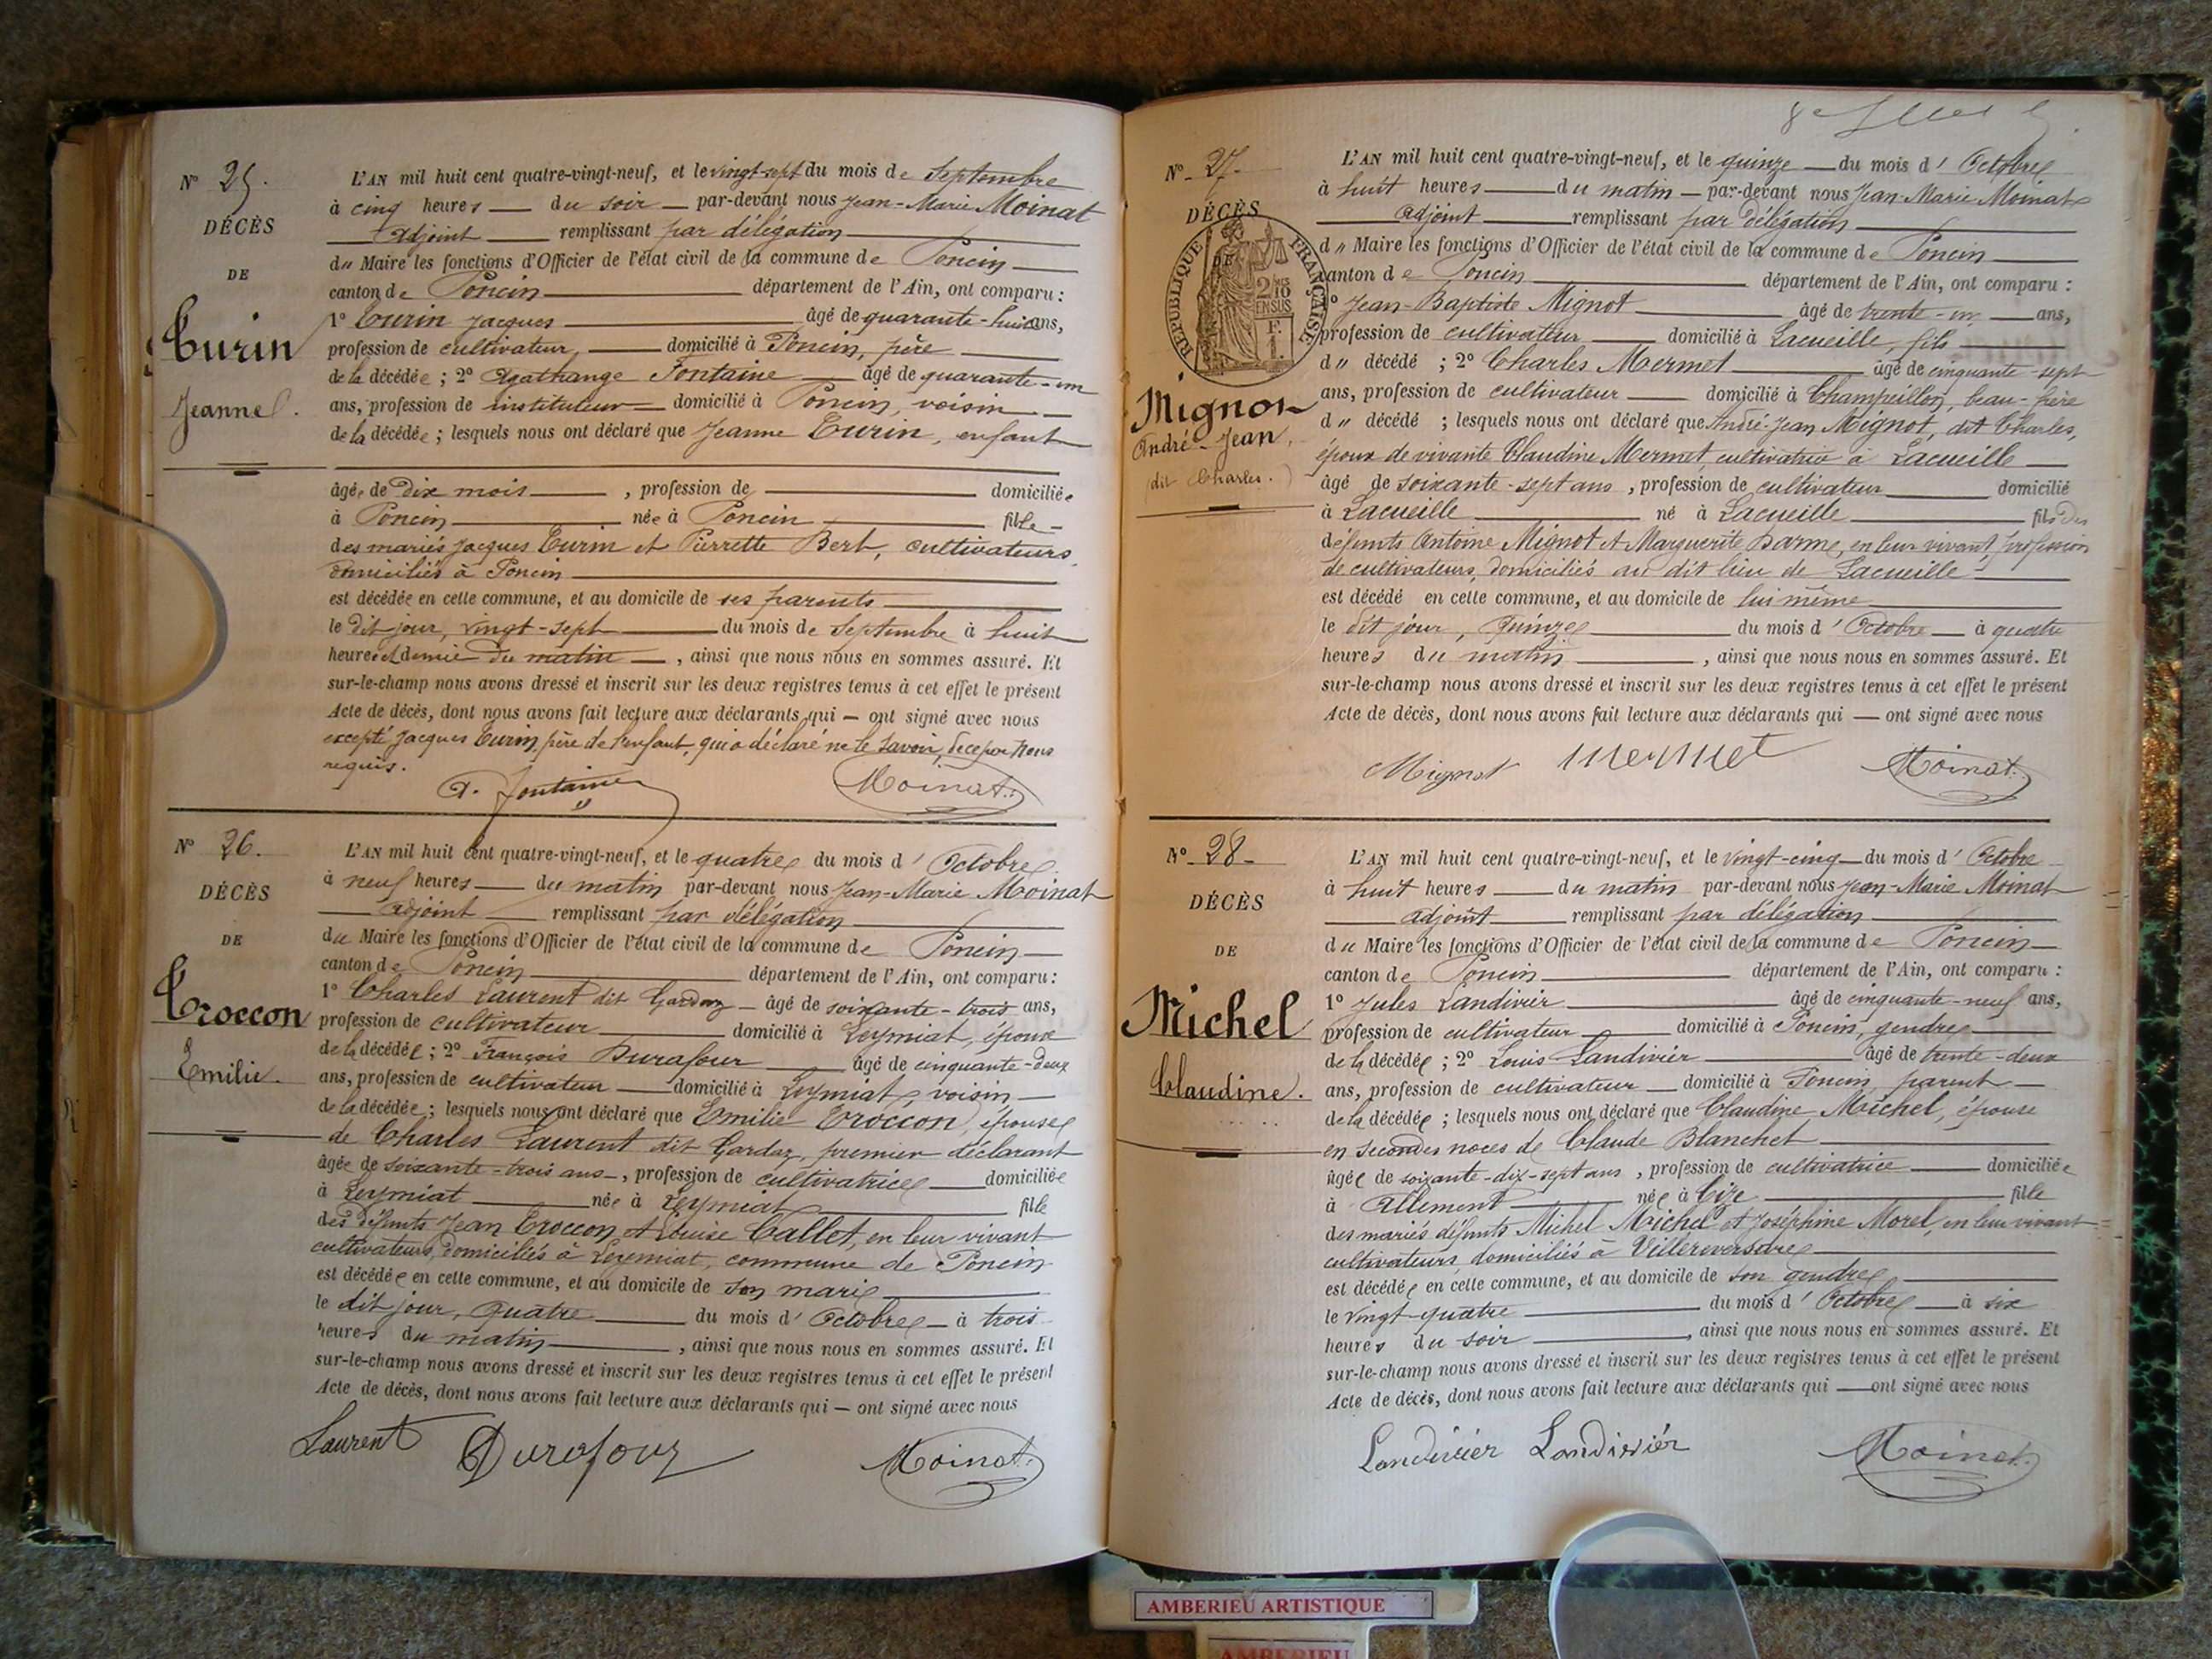 N° 25.
DÉCÈS
DE
Turin
Jeanne.
L'AN mil huit cent quatre-vingt-neuf, et le vingt-sept du mois de Septembre
à cinq heures — du soir — par-devant nous Jean-Marie Moinat
adjoint — remplissant par délégation
du Maire les fonctions d'Officier de l'état civil de la commune de Poncin
canton de Poncin — département de l'Ain, ont comparu :
1° Turin Jacques — âgé de quarante-huit ans,
profession de cultivateur, — domicilié à Poncin, père
de la décédée ; 2° Agathange Fontaine — âgé de quarante-un
ans, profession de instituteur — domicilié à Poncin, voisin —
de la décédée ; lesquels nous ont déclaré que Jeanne Turin, enfant
âgée de dix mois — , profession de — domiciliée
à Poncin — née à Poncin — fille —
des mariés Jacques Turin et Pierrette Bert, cultivateurs,
domiciliés à Poncin
est décédée en cette commune, et au domicile de ses parents
le dit jour, vingt-sept — du mois de Septembre à huit
heures et demie du matin — , ainsi que nous nous en sommes assuré. Et
sur-le-champ nous avons dressé et inscrit sur les deux registres tenus à cet effet le présent
Acte de décès, dont nous avons fait lecture aux déclarants qui — ont signé avec nous
excepté Jacques Turin, père de l'enfant, qui a déclaré ne le savoir, de ce par nous
requis.
A. Fontaine Moinat
N° 26.
DÉCÈS
DE
Troccon
Emilie.
L'AN mil huit cent quatre-vingt-neuf, et le quatre du mois d' Octobre
à neuf heures — du matin par-devant nous Jean-Marie Moinat
adjoint — remplissant par délégation
du Maire les fonctions d'Officier de l'état civil de la commune de Poncin —
canton de Poncin — département de l'Ain, ont comparu :
1° Charles Laurent dit Gardaz — âgé de soixante-trois ans,
profession de cultivateur — domicilié à Leymiat, époux
de la décédée ; 2° François Durafour — âgé de cinquante-deux
ans, profession de cultivateur — domicilié à Leymiat, voisin —
de la décédée ; lesquels nous ont déclaré que Emilie Troccon, épouse
de Charles Laurent dit Gardaz, premier déclarant
âgée de soixante-trois ans — , profession de cultivatrice — domiciliée
à Leymiat — née à Leymiat — fille
des défunts Jean Troccon et Louise Callet, en leur vivant
cultivateurs, domiciliés à Leymiat, commune de Poncin
est décédée en cette commune, et au domicile de son mari
le dit jour, quatre — du mois d' Octobre — à trois
heures du matin — , ainsi que nous nous en sommes assuré. Et
sur-le-champ nous avons dressé et inscrit sur les deux registres tenus à cet effet le présent
Acte de décès, dont nous avons fait lecture aux déclarants qui — ont signé avec nous
Laurent Durafour Moinat
N° 27.
DÉCÈS
DE
RÉPUBLIQUE FRANÇAISE
2/10 EN SUS
F.
1.
Mignot
André-Jean,
(dit Charles.)
L'AN mil huit cent quatre-vingt-neuf, et le quinze — du mois d' Octobre
à huit heures — du matin — par-devant nous Jean-Marie Moinat
adjoint — remplissant par délégation
du Maire les fonctions d'Officier de l'état civil de la commune de Poncin
canton de Poncin — département de l'Ain, ont comparu :
1° Jean-Baptiste Mignot — âgé de trente-un — ans,
profession de cultivateur — domicilié à Lacueille, fils
du décédé ; 2° Charles Mermet — âgé de cinquante-sept
ans, profession de cultivateur — domicilié à Champeillon, beau-frère
du décédé ; lesquels nous ont déclaré que André-Jean Mignot, dit Charles,
époux de vivante Claudine Mermet, cultivatrice à Lacueille —
âgé de soixante-sept ans , profession de cultivateur — domicilié
à Lacueille — né à Lacueille — fils des
défunts Antoine Mignot et Marguerite Darme, en leur vivant profession
de cultivateurs, domiciliés au dit lieu de Lacueille —
est décédé en cette commune, et au domicile de lui même
le dit jour, quinze — du mois d' Octobre — à quatre
heures du matin — , ainsi que nous nous en sommes assuré. Et
sur-le-champ nous avons dressé et inscrit sur les deux registres tenus à cet effet le présent
Acte de décès, dont nous avons fait lecture aux déclarants qui — ont signé avec nous
Mignot Mermet Moinat
N° 28
DÉCÈS
DE
Michel
Claudine.
L'AN mil huit cent quatre-vingt-neuf, et le vingt-cinq — du mois d' Octobre
à huit heures — du matin par-devant nous Jean-Marie Moinat
adjoint — remplissant par délégation
du Maire les fonctions d'Officier de l'état civil de la commune de Poncin —
canton de Poncin — département de l'Ain, ont comparu :
1° Jules Landivier — âgé de cinquante-neuf ans,
profession de cultivateur — domicilié à Poncin, gendre
de la décédée ; 2° Louis Landivier — âgé de trente-deux
ans, profession de cultivateur — domicilié à Poncin, parent —
de la décédée ; lesquels nous ont déclaré que Claudine Michel, épouse
en secondes noces de Claude Blanchet
âgée de soixante-dix-sept ans , profession de cultivatrice — domiciliée
à Allement — née à Cize — fille
des mariés défunts Michel Michel et Joséphine Morel, en leur vivant
cultivateurs, domiciliés à Villereversure
est décédée en cette commune, et au domicile de son gendre
le vingt-quatre — du mois d' Octobre — à six
heures du soir — , ainsi que nous nous en sommes assuré. Et
sur-le-champ nous avons dressé et inscrit sur les deux registres tenus à cet effet le présent
Acte de décès, dont nous avons fait lecture aux déclarants qui — ont signé avec nous
Landivier Landivier Moinat
AMBERIEU ARTISTIQUE
AMBERIEU